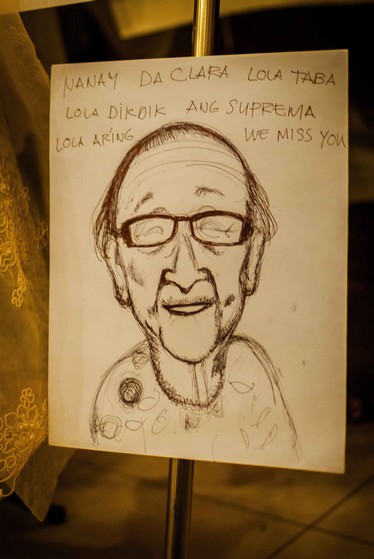 NANAY DA CLARA LOLA TABA
LOLA DIKDIK ANG SUPREMA
LOLA ARING WE MISS YOU